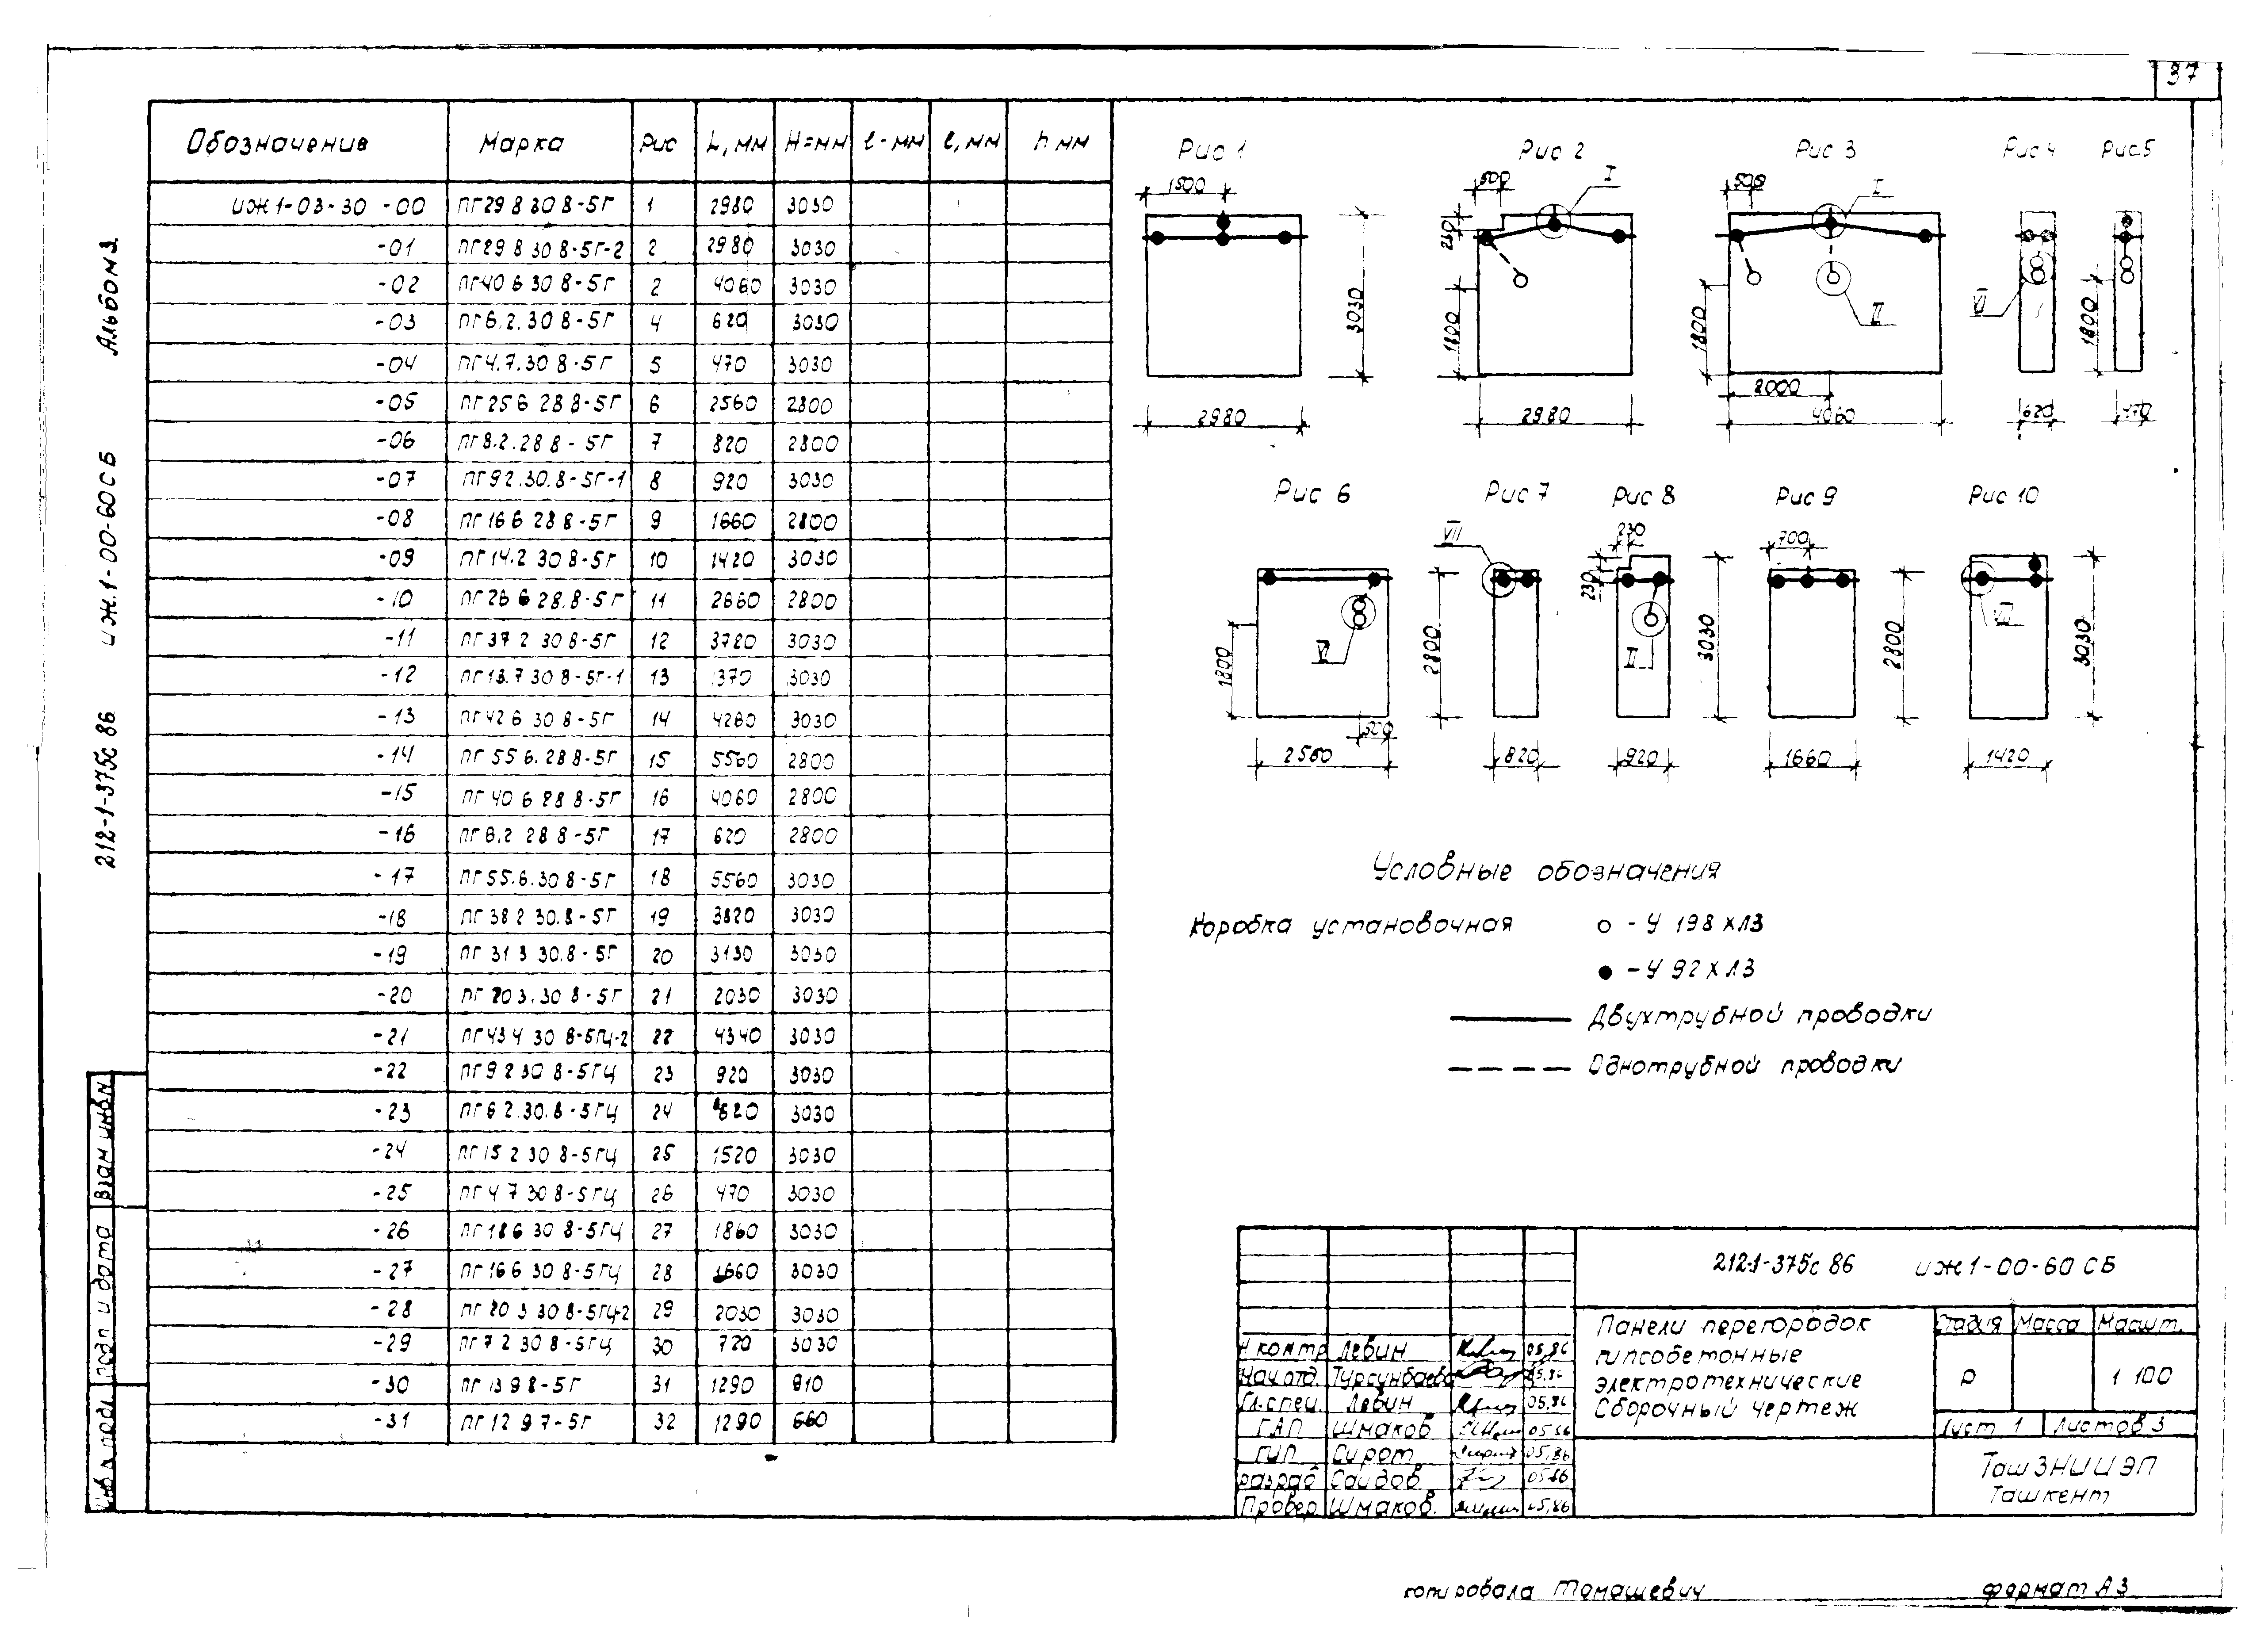 37
Обозначение Марка Рис L, мм H=мм ℓ-мм ℓ, мм h мм
ИЖ1-03-30 -00 ПГ29 8 30 8-5Г 1 2980 3030
-01 ПГ29 8 30 8-5Г-2 2 2980 3030
-02 ПГ40 6 30 8-5Г 2 4060 3030
-03 ПГ6.2.30 8-5Г 4 620 3030
-04 ПГ4.7.30 8-5Г 5 470 3030
-05 ПГ25 6 28 8-5Г 6 2560 2800
-06 ПГ8.2.28 8-5Г 7 820 2800
-07 ПГ92.30.8-5Г-1 8 920 3030
-08 ПГ16 6 28 8-5Г 9 1660 2800
-09 ПГ14.2 30 8-5Г 10 1420 3030
-10 ПГ26 6 28.8-5Г 11 2660 2800
-11 ПГ37 2 30 8-5Г 12 3720 3030
-12 ПГ13.7 30 8-5Г-1 13 1370 3030
-13 ПГ42 6 30 8-5Г 14 4260 3030
-14 ПГ 55 6.28 8-5Г 15 5560 2800
-15 ПГ 40 6 28 8-5Г 16 4060 2800
-16 ПГ6,2 28 8-5Г 17 620 2800
-17 ПГ55.6.30 8-5Г 18 5560 3030
-18 ПГ38 2 30.8-5Г 19 3820 3030
-19 ПГ 31 3 30.8-5Г 20 3130 3030
-20 ПГ 20 3.30 8-5Г 21 2030 3030
-21 ПГ43 4 30 8-5ГЦ-2 22 4340 3030
-22 ПГ9 2 30 8-5ГЦ 23 920 3030
-23 ПГ6 2.30.8-5ГЦ 24 620 3030
-24 ПГ15 2 30 8-5ГЦ 25 1520 3030
-25 ПГ4 7 30 8-5ГЦ 26 470 3030
-26 ПГ18 6 30 8-5ГЦ 27 1860 3030
-27 ПГ16 6 30 8-5ГЦ 28 1660 3030
-28 ПГ 20 3 30 8-5ГЦ-2 29 2030 3030
-29 ПГ7 2 30 8-5ГЦ 30 720 3030
-30 ПГ 13 9 8-5Г 31 1290 910
-31 ПГ 12 9 7-5Г 32 1290 660
Рис 1 Рис 2 Рис 3 Рис 4 Рис.5
1500 500 I 500 I
230
3030 1800 1800 II VI 1800
2000
2980 2980 4060 620 470
Рис 6 Рис 7 Рис 8 Рис 9 Рис 10
VII 230 700
230
1800 VI 2800 II 3030 2800 VII 3030
520
2560 820 920 1660 1420
Условные обозначения
Коробка установочная ○ - У 198 ХЛ3
● - У 92 ХЛ3
Двухтрубной проводки
Однотрубной проводки
212-1-375с 86 ИЖ1-00-60 СБ
Панели перегородок
гипсобетонные
электротехнические
Сборочный чертеж
Стадия Масса Масшт.
Р 1 100
Лист 1 Листов 3
ТашЗНИИЭП
Ташкент
Н контр Левин 05,86
Нач.отд. Турсунбаева 05,86
Гл.спец. Левин 05,86
ГАП Шмаков 05.86
ГИП Сирот 05,86
разраб Саидов 05.86
Провер Шмаков. 05,86
Копировала Томашевич Формат А3
212-1-375с 86 ИЖ.1-00-60СБ Альбом 3.
Взам инв N
Подп и дата
Инв N подл